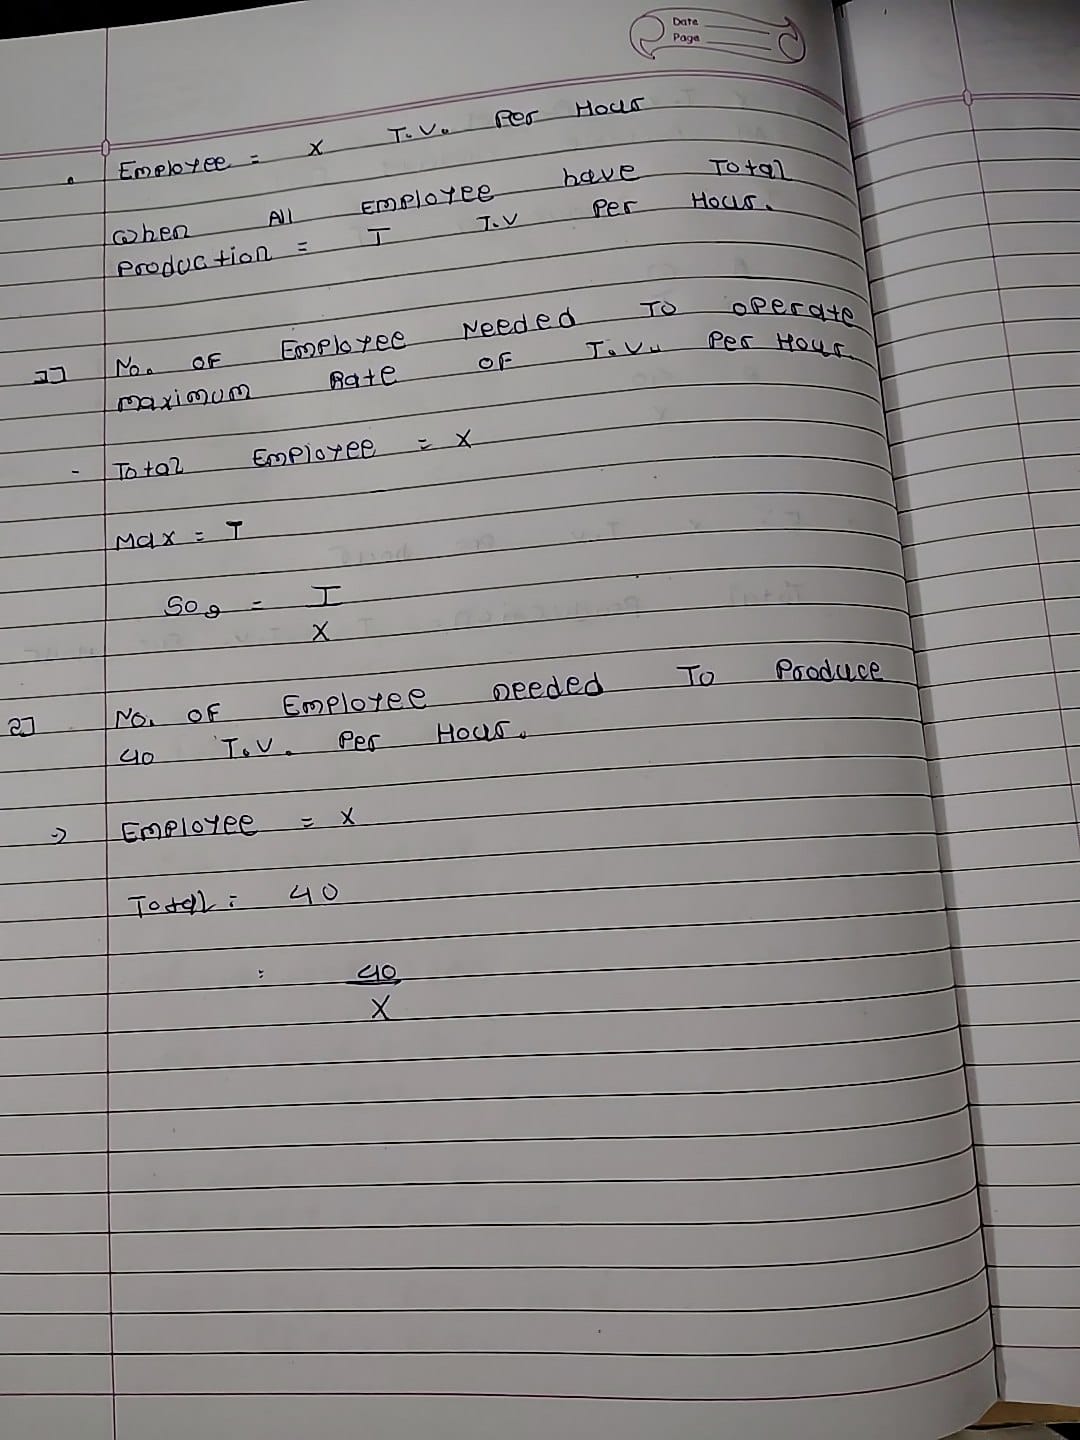 Date
Page
Employee = X T.V. Per Hour
When All Employee have Total
Production = T T.V Per Hour.
1] No. of Employee Needed To operate
maximum Rate of T.V. Per Hour.
- Total Employee = X
Max = T
So, = T
X
2] No. of Employee needed To Produce
40 T.V. Per Hour.
→ Employee = X
Total = 40
= 40
X